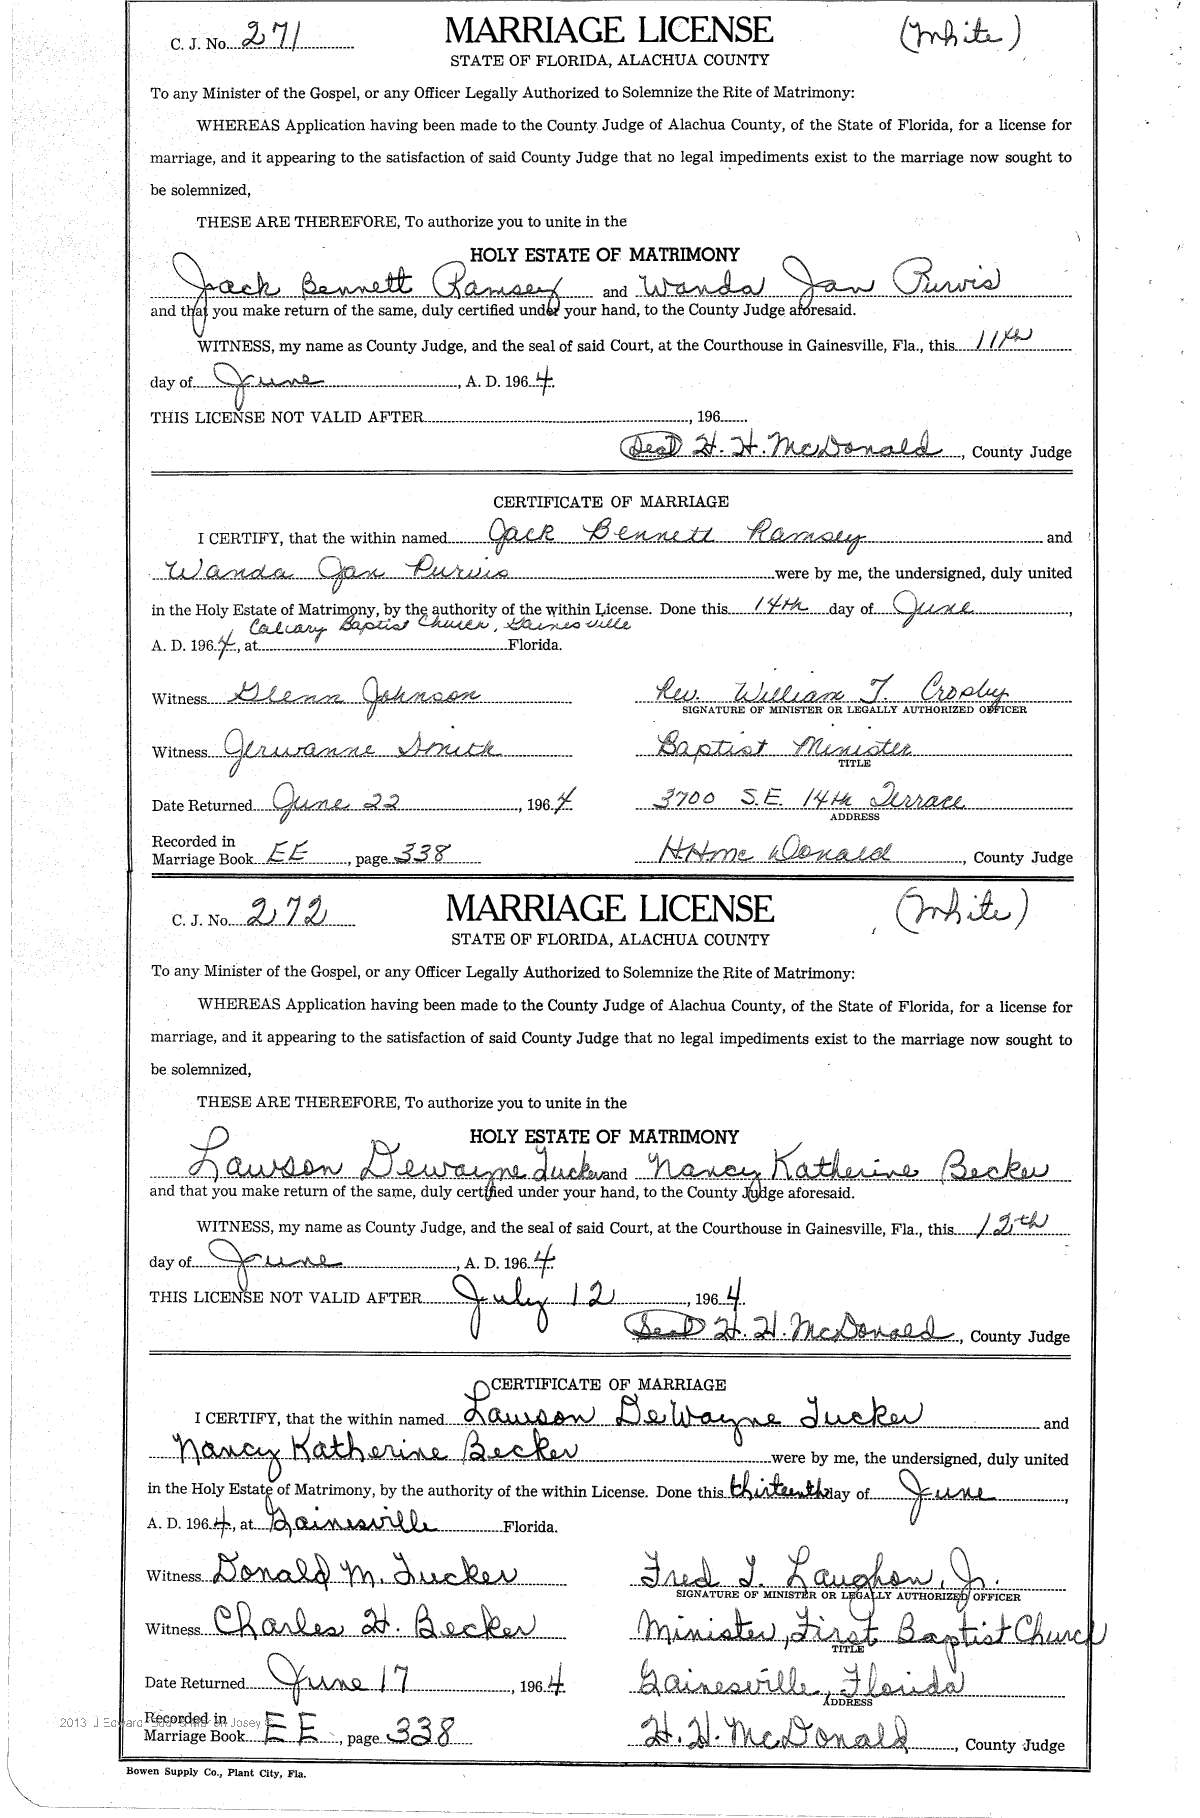 C. J. No. 271 MARRIAGE LICENSE (White)
STATE OF FLORIDA, ALACHUA COUNTY
To any Minister of the Gospel, or any Officer Legally Authorized to Solemnize the Rite of Matrimony:
WHEREAS Application having been made to the County Judge of Alachua County, of the State of Florida, for a license for
marriage, and it appearing to the satisfaction of said County Judge that no legal impediments exist to the marriage now sought to
be solemnized,
THESE ARE THEREFORE, To authorize you to unite in the
HOLY ESTATE OF MATRIMONY
Jack Bennett Ramsey and Wanda Jan Purvis
and that you make return of the same, duly certified under your hand, to the County Judge aforesaid.
WITNESS, my name as County Judge, and the seal of said Court, at the Courthouse in Gainesville, Fla., this 11th
day of June, A. D. 1964.
THIS LICENSE NOT VALID AFTER , 196
(Seal) H. H. McDonald, County Judge
CERTIFICATE OF MARRIAGE
I CERTIFY, that the within named Jack Bennett Ramsey and
Wanda Jan Purvis were by me, the undersigned, duly united
in the Holy Estate of Matrimony, by the authority of the within License. Done this 14th day of June,
A. D. 1964, at Calvary Baptist Church, Gainesville Florida.
Witness Glenn Johnson Rev. William T. Crosby
SIGNATURE OF MINISTER OR LEGALLY AUTHORIZED OFFICER
Witness Jerwanne Smith Baptist Minister
TITLE
Date Returned June 22, 1964 3700 S.E. 14th Terrace
ADDRESS
Recorded in
Marriage Book EE, page 338 H. H. McDonald, County Judge
C. J. No. 272 MARRIAGE LICENSE (White)
STATE OF FLORIDA, ALACHUA COUNTY
To any Minister of the Gospel, or any Officer Legally Authorized to Solemnize the Rite of Matrimony:
WHEREAS Application having been made to the County Judge of Alachua County, of the State of Florida, for a license for
marriage, and it appearing to the satisfaction of said County Judge that no legal impediments exist to the marriage now sought to
be solemnized,
THESE ARE THEREFORE, To authorize you to unite in the
HOLY ESTATE OF MATRIMONY
Lawson Dewayne Tucker and Nancy Katherine Becker
and that you make return of the same, duly certified under your hand, to the County Judge aforesaid.
WITNESS, my name as County Judge, and the seal of said Court, at the Courthouse in Gainesville, Fla., this 12th
day of June, A. D. 1964.
THIS LICENSE NOT VALID AFTER July 12, 1964
(Seal) H. H. McDonald, County Judge
CERTIFICATE OF MARRIAGE
I CERTIFY, that the within named Lawson DeWayne Tucker and
Nancy Katherine Becker were by me, the undersigned, duly united
in the Holy Estate of Matrimony, by the authority of the within License. Done this thirteenth day of June,
A. D. 1964, at Gainesville Florida.
Witness Donald M. Tucker Fred T. Laughon, Jr.
SIGNATURE OF MINISTER OR LEGALLY AUTHORIZED OFFICER
Witness Charles H. Becker Minister, First Baptist Church
TITLE
Date Returned June 17, 1964 Gainesville, Florida
ADDRESS
2013 J Edward Josey
Recorded in
Marriage Book EE, page 338 H. H. McDonald, County Judge
Bowen Supply Co., Plant City, Fla.